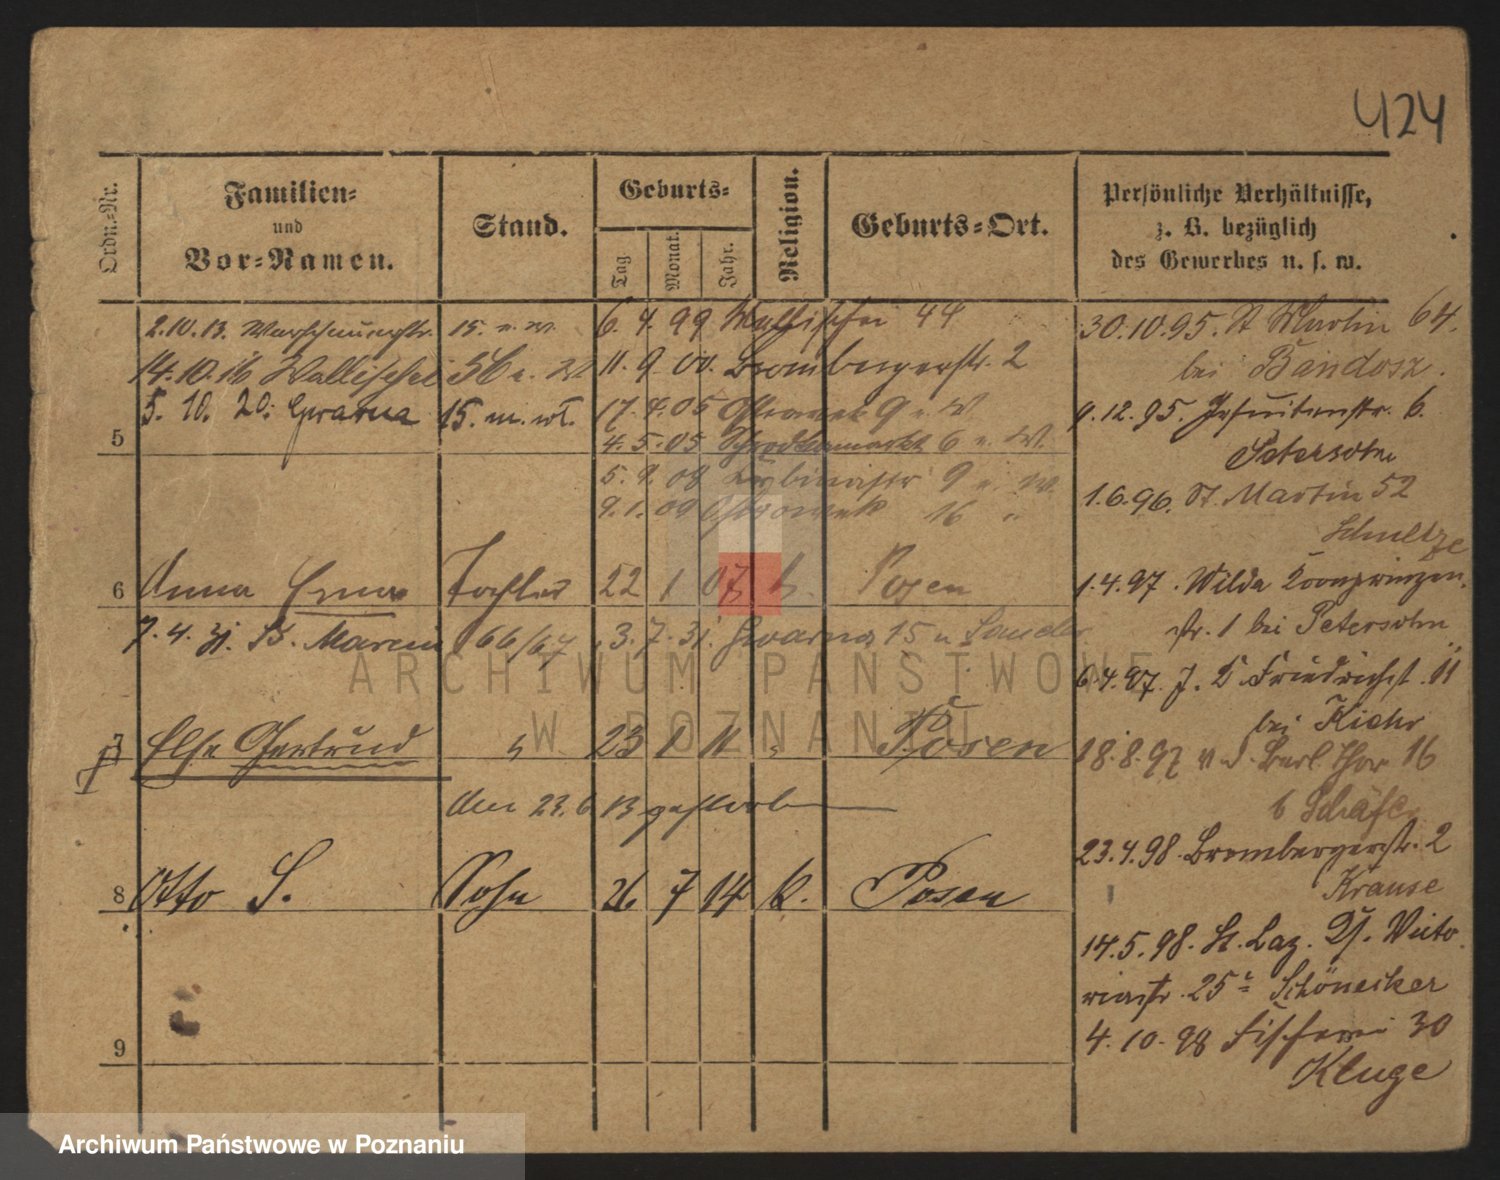 424
Ordn.-Nr.
Familien-
und
Vor-Namen.
Stand.
Geburts-
Tag.
Monat.
Jahr.
Religion.
Geburts-Ort.
Persönliche Verhältnisse,
z. B. bezüglich
des Gewerbes u. s. w.
2.10.13. 15. u. w. 6. 4. 99 Wallischei 44
14.10.16 Wallischei 11. 9. 00. Brombergerstr. 2
5. 10. 20. Gwarna 15. m. wł. 17. 4. 05 Ostrowek 9 u. W
5
4. 5. 05 Schrodkamarkt 6 u. W.
5. 9. 08 9 u. w.
9. 1. 09 Ostrowek 16 "
6 Anna Erna Tochter 22 1 07 k. Posen
7. 4. 31. Św. Marcin 66/67 3. 7. 31. Gwarna 15 u
7 Else Gertrud " 23 1 11 " Posen
den 23. 6. 13 gestorben
8 Otto S. Sohn 26 7 14 k. Posen
9
30.10.95. St Martin 64.
bei Bandosz.
9.12.95. Jesuitenstr. 6.
Petersohn
1.6.96. St. Martin 52
Schultze
1.4.97. Wilda Kronprinzen
str. 1 bei Petersohn
6.4.97. J. Friedrichst. 11
bei
18.8.97 v. d. Berl. Thor 16
b Schäfe
23.4.98. Brombergerstr. 2
Krause
14.5.98. St. Laz. Victo
riastr. 25 Schönecker
4. 10. 98 Fischerei 30
Kluge
ARCHIWUM PAŃSTWOWE
W POZNANIU
Archiwum Państwowe w Poznaniu